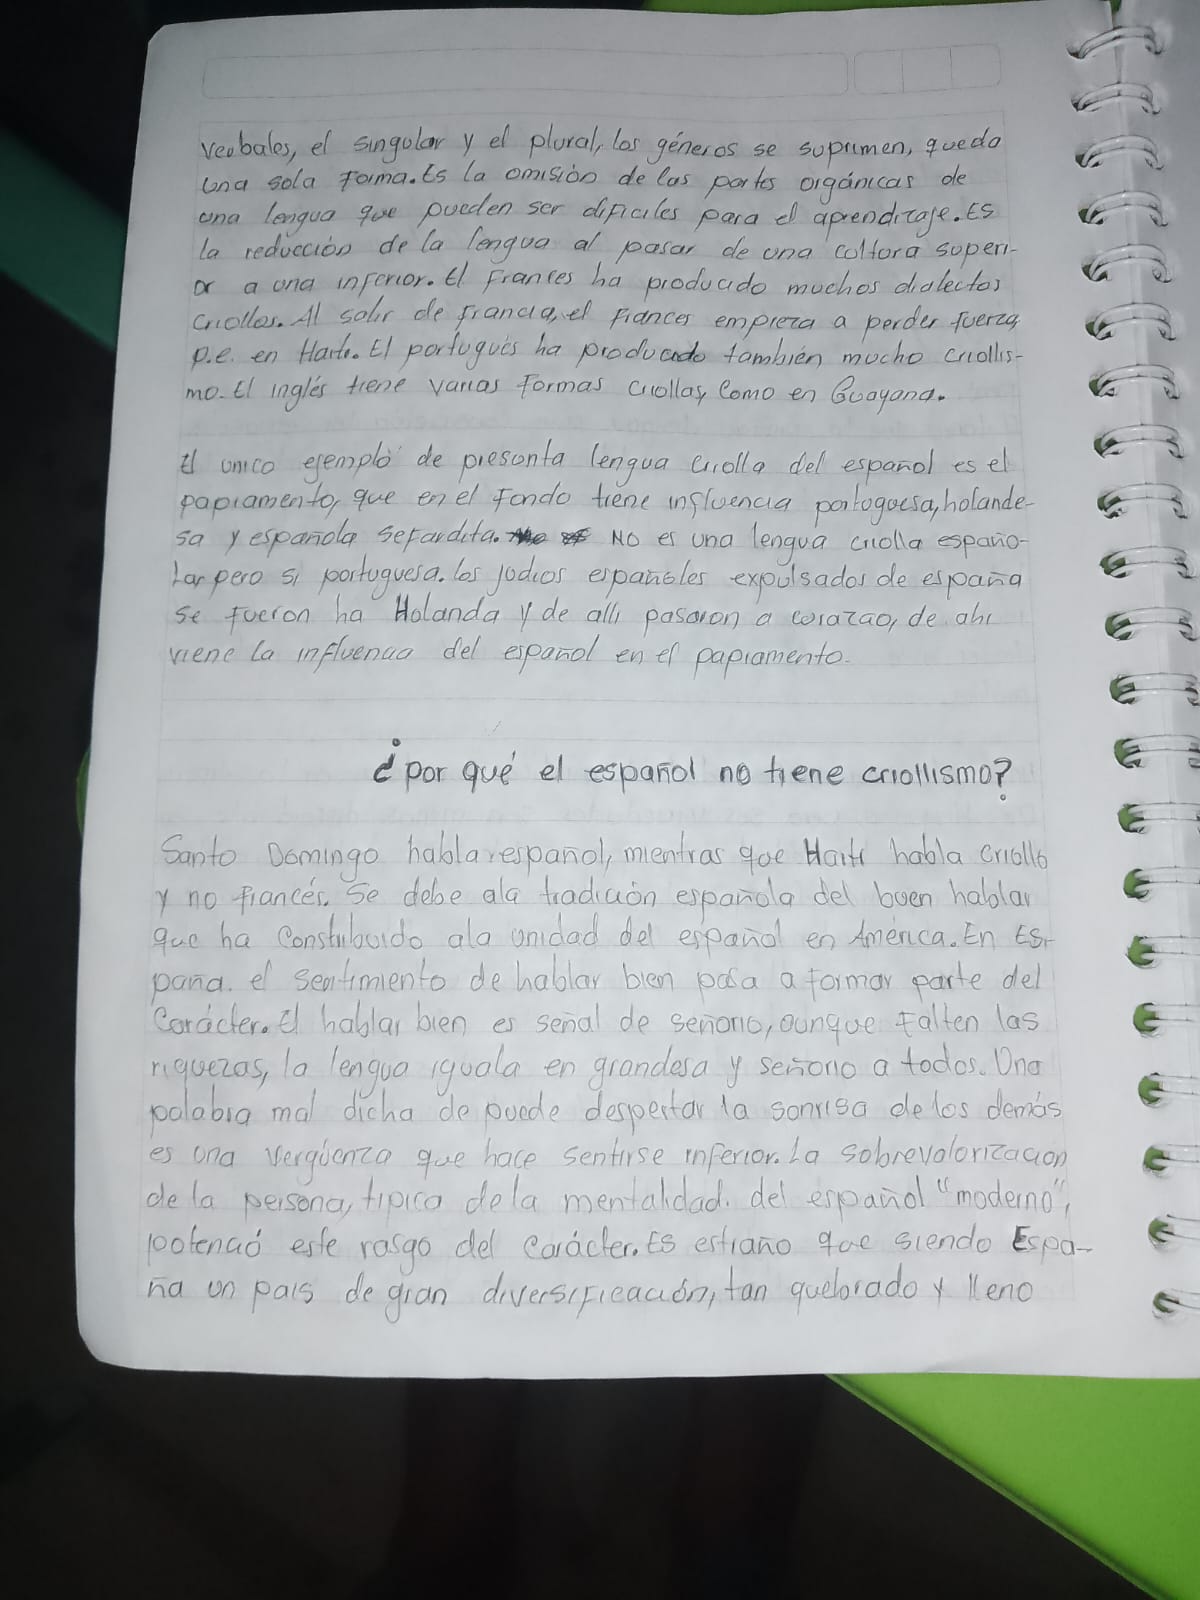 verbales, el singular y el plural, los géneros se suprimen, queda
una sola forma. Es la omisión de las partes orgánicas de
una lengua que pueden ser dificiles para el aprendizaje. Es
la reducción de la lengua al pasar de una cultura superi-
or a una inferior. El Frances ha producido muchos dialectos
criollos. Al salir de francia, el frances empieza a perder fuerza,
p.e. en Haití. El portugués ha producido también mucho criollis-
mo. El inglés tiene varias formas criollas, como en Guayana.
El unico ejemplo de presunta lengua criolla del español es el
papiamento, que en el fondo tiene influencia portuguesa, holande-
sa y española sefardita. No es una lengua criolla españo-
la, pero si portuguesa. los judios españoles expulsados de españa
se fueron ha Holanda y de alli pasaron a curazao, de ahi
viene la influencia del español en el papiamento.
¿por qué el español no tiene criollismo?
Santo Domingo habla español, mientras que Haití habla criollo
y no francés. Se debe ala tradición española del buen hablar
que ha constribuido ala unidad del español en América. En Es-
paña. el sentimiento de hablar bien pasa a formar parte del
Carácter. El hablar bien es señal de señorio, aunque falten las
riquezas, la lengua iguala en grandesa y señorio a todos. Una
palabra mal dicha de puede despertar la sonrisa de los demás
es una vergüenza que hace sentirse inferior. La sobrevalorizacion
de la persona, tipica de la mentalidad. del español "moderno",
potenció este rasgo del carácter. Es estraño que siendo Espa-
ña un pais de gran diversificación, tan quebrado y lleno